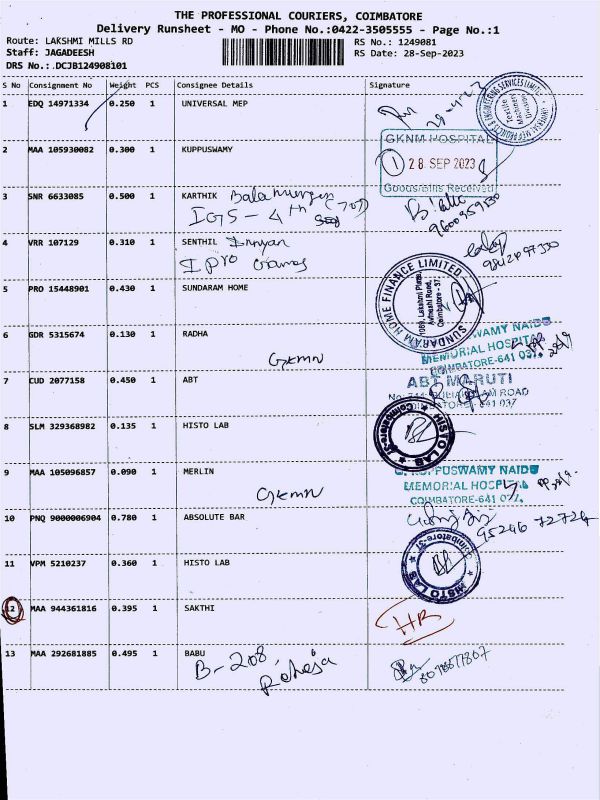 THE PROFESSIONAL COURIERS, COIMBATORE
Delivery Runsheet - MO - Phone No.:0422-3505555 - Page No.:1
Route: LAKSHMI MILLS RD RS No.: 1249081
Staff: JAGADEESH RS Date: 28-Sep-2023
DRS No.: .DCJB124908101
S No Consignment No Weight PCS Consignee Details Signature
1 EDQ 14971334 0.250 1 UNIVERSAL MEP
2 MAA 105930082 0.300 1 KUPPUSWAMY
GKNM HOSPITAL
1 28 SEP 2023
Goods/Bills Received
3 SNR 6633085 0.500 1 KARTHIK Balamurugan
IGS - 4th
4 VRR 107129 0.310 1 SENTHIL
I pro
5 PRO 15448901 0.430 1 SUNDARAM HOME
SUNDARAM HOME FINANCE LIMITED
1089, Lakshmi Plaza,
Avinashi Road,
Coimbatore - 37
6 GDR 5315674 0.130 1 RADHA
GKMN
KUPPUSWAMY NAIDU
MEMORIAL HOSPITAL
COIMBATORE-641 037.
7 CUD 2077158 0.450 1 ABT
ABT MARUTI
8 SLM 329368982 0.135 1 HISTO LAB
HISTO LAB Coimbatore
9 MAA 105096857 0.090 1 MERLIN
GKMN
KUPPUSWAMY NAIDU
MEMORIAL HOSPITAL
COIMBATORE-641 037.
10 PNQ 9000006904 0.780 1 ABSOLUTE BAR
95246 72724
11 VPM 5210237 0.360 1 HISTO LAB
HISTO LAB Coimbatore-37
12 MAA 944361816 0.395 1 SAKTHI
HB
13 MAA 292681885 0.495 1 BABU
B-208,
Raheja